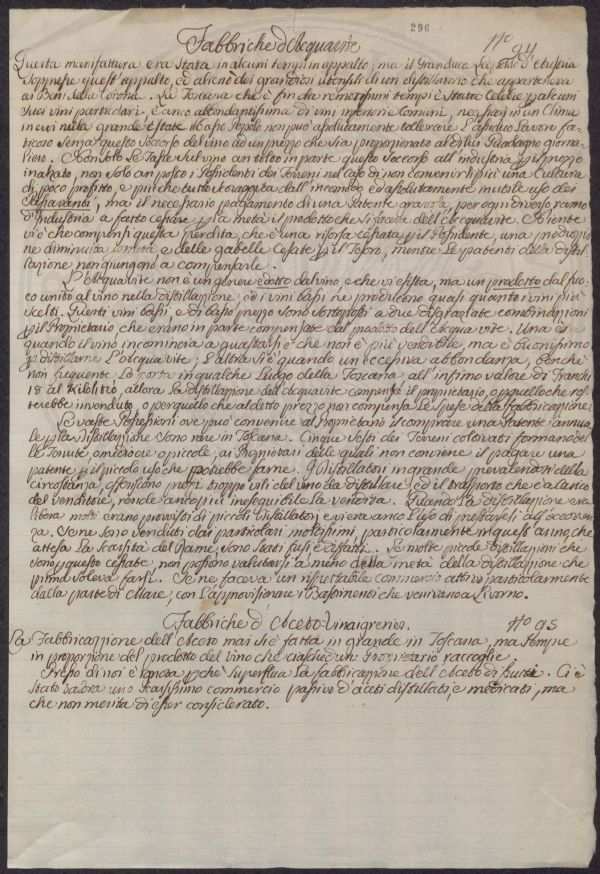 296
Fabbriche d'Acquavite N.o 94
Questa manifattura era stata in alcuni tempi in appalto; ma il Granduca Leopoldo d'Etruria
Soppresse quest'appalto, ed alienò dei grandiosi utensili di un distillatorio che apparteneva
ai Beni della Corona. La Toscana che è fin da remotissimi tempi è stata celebre per alcuni
suoi vini particolari, è anco abbondantissima di vini inferiori e comuni, necessari in un Clima
in cui nella grande Estate il basso Popolo non può assolutamente tollerare l'assiduo lavoro fa-
ticoso senza questo soccorso del vino ad un prezzo che sia proporzionato al di lui guadagno giorna-
liero. Non solo le Tasse sul vino an tolto in parte questo soccorso all'industria per il prezzo
inalzato, non solo an posto i Possidenti dei Terreni nel caso di non convenirli più una cultura
di poco profitto, e più che tutto scoraggita dall'incomodo ed assolutamente inutile uso dei
Passavanti, ma il necessario pagamento di una Patente gravosa, per ogni diverso ramo
d'Industria a fatto cessare per la metà il prodotto che si faceva dell'Acquavite. Niente
vi è che compensi questa perdita, che è una risorsa cessata per il Possidente, una produzio-
ne diminuita, e delle gabelle cessate per il Tesoro, mentre le patenti della distil-
lazione non giungono a compensarle.
L'Acquavite non è un genere edotto dal vino, e che vi esista, ma un prodotto dal fuo-
co unito al vino nella distillazione, ed i vini bassi ne producono quasi quanto i vini più
scelti. Questi vini bassi, e di basso prezzo sono sottoposti a due disgraziate combinazioni
per il Proprietario che erano in parte compensate dal prodotto dell'Acqua vite. Una è
quando il vino incomincia a guastarsi e che non è più vendibile, ma è buonissimo
per distillarne l'Acquavite; L'altra si è quando un eccessiva abbondanza, benchè
non frequente lo porta in qualche luogo della Toscana all'infimo valore di Franchi
18 al Kilolitro, allora la distillazione dell'Acquavite compensa il proprietario, o per quello che res-
terebbe invenduto, o per quello che al detto prezzo non compensa le spese della fabbricazione.
Le vaste Possessioni ove può convenire al Proprietario il comprare una Patente annua-
le per la Distillazione sono rare in Toscana. Cinque sesti dei Terreni coltivati formano del-
le Tenute, o mediocri o piccole, ai Proprietari delle quali non conviene il pagare una
patente per il piccolo uso che potrebbe farne. I Distillatori in grande prevalendosi della
circostanza, offeriscono patti troppo vili del vino da distillare, ed il trasporto che è a carico
del venditore, rende anco più ineseguibile la vendita. Quando la distillazione era
libera molti erano provvisti di piccoli Distillatori e vi era anco l'uso di prestarseli all'occoren-
za. Se ne sono venduti dai particolari moltissimi, particolarmente in quest'anno, che
attesa la scarsità del Rame, sono stati fusi e disfatti. Le molte piccole distillazioni che
sono per questo cessate, non possono valutarsi a meno della metà della distillazione che
prima soleva farsi. Se ne faceva un rispettabile commercio attivo particolarmente
dalla parte di Mare, con l'approvisionare i Bastimenti che venivano a Livorno.
Fabbriche d'Aceto Vinaigreries. N.o 95
La Fabbricazione dell'Aceto mai si è fatta in grande in Toscana, ma sempre
in proporzione del prodotto del vino che ciaschedun Proprietario raccoglie.
Presso di noi è ignota perchè superflua la fabbricazione dell'Aceto di Birra. Ci è
stato talora uno scarsissimo commercio passivo d'aceti distillati, e medicati, ma
che non merita di esser considerato.